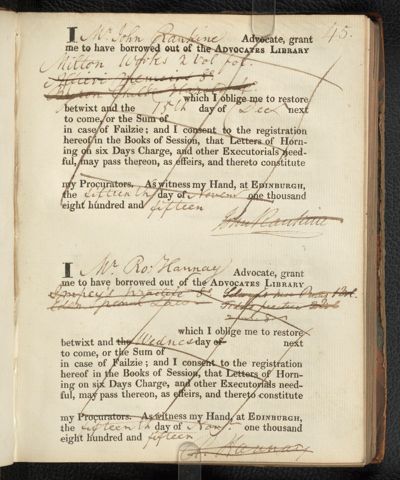 45.
I Mr. John Rankine Advocate, grant
me to have borrowed out of the ADVOCATES LIBRARY
Milton Works 2 Vol fol.
Alfieri Memoirs 8°
which I oblige me to restore
betwixt and the 15th day of Dec next
to come, or the Sum of
in case of Failzie; and I consent to the registration
hereof in the Books of Session, that Letters of Horn-
ing on six Days Charge, and other Executorials need-
ful, may pass thereon, as effeirs, and thereto constitute
my Procurators. As witness my Hand, at EDINBURGH,
the fifteenth day of Novem one thousand
eight hundred and fifteen
John Rankine
I Mr. Ro: Hannay Advocate, grant
me to have borrowed out of the ADVOCATES LIBRARY
Impey's Practice 8°
which I oblige me to restore
betwixt and the Wednesday of next
to come, or the Sum of
in case of Failzie; and I consent to the registration
hereof in the Books of Session, that Letters of Horn-
ing on six Days Charge, and other Executorials need-
ful, may pass thereon, as effeirs, and thereto constitute
my Procurators. As witness my Hand, at EDINBURGH,
the fifteenth day of Novr. one thousand
eight hundred and fifteen
R. Hannay